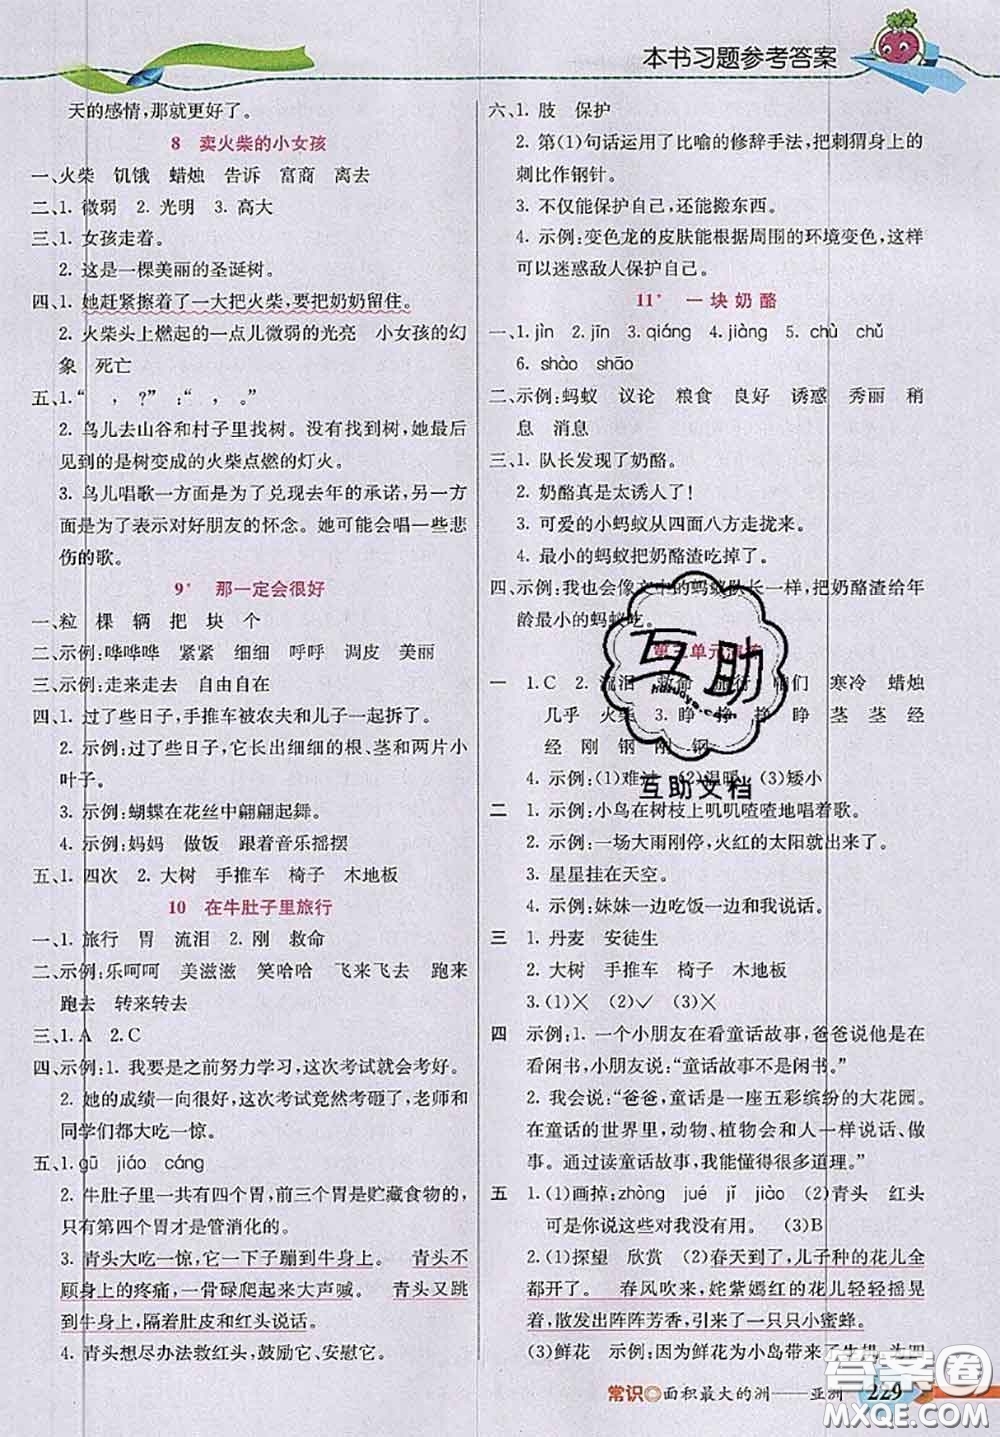 本书习题参考答案
天的感情，那就更好了。
8 卖火柴的小女孩
一、火柴 饥饿 蜡烛 告诉 富商 离去
二、1. 微弱 2. 光明 3. 高大
三、1. 女孩走着。
2. 这是一棵美丽的圣诞树。
四、1. 她赶紧擦着了一大把火柴，要把奶奶留住。
2. 火柴头上燃起的一点儿微弱的光亮 小女孩的幻
象 死亡
五、1.“ ， ？”；“ ， 。”
2. 鸟儿去山谷和村子里找树。没有找到树，但她最后
见到的是树变成的火柴点燃的灯火。
3. 鸟儿唱歌一方面是为了兑现去年的承诺，另一方
面是为了表示对好朋友的怀念。她可能会唱一些悲
伤的歌。
9* 那一定会很好
一、粒 棵 辆 把 块 个
二、示例：哗哗哗 紧紧 细细 呼呼 调皮 美丽
三、示例：走来走去 自由自在
四、1. 过了些日子，手推车被农夫和儿子一起拆了。
2. 示例：过了些日子，它长出细细的根、茎和两片小
叶子。
3. 示例：蝴蝶在花丝中翩翩起舞。
4. 示例：妈妈 做饭 跟着音乐摇摆
五、1. 四次 2. 大树 手推车 椅子 木地板
10 在牛肚子里旅行
一、1. 旅行 胃 流泪 2. 刚 救命
二、示例：乐呵呵 美滋滋 笑哈哈 飞来飞去 跑来
跑去 转来转去
三、1. A 2. C
四、示例：1. 我要是之前努力学习，这次考试就会考好。
2. 她的成绩一向很好，这次考试竟然考砸了，老师和
同学们都大吃一惊。
五、1. gū jiáo cáng
2. 牛肚子里一共有四个胃，前三个胃是贮藏食物的，
只有第四个胃才是管消化的。
3. 青头大吃一惊，它一下子蹦到牛身上。 青头不
顾身上的疼痛，一骨碌爬起来大声喊。 青头一跳
到牛身上，隔着肚皮和红头说话。
4. 青头想尽办法救红头，鼓励它、安慰它。
六、1. 肢 保护
2. 第(1)句话运用了比喻的修辞手法，把刺猬身上的
刺比作钢针。
3. 不仅能保护自己，还能搬东西。
4. 示例：变色龙的皮肤能根据周围的环境变色，这样
可以迷惑敌人保护自己。
11* 一块奶酪
一、1. jìn 2. jīn 3. qiáng 4. jiàng 5. chù chǔ
6. shào shāo
二、示例：蚂蚁 议论 粮食 良好 诱惑 秀丽 稍
息 消息
三、1. 队长发现了奶酪。
2. 奶酪真是太诱人了！
3. 可爱的小蚂蚁从四面八方走拢来。
4. 最小的蚂蚁把奶酪渣吃掉了。
四、示例：我也会像文中的蚂蚁队长一样，把奶酪渣给年
龄最小的蚂蚁吃。
第三单元演练
一 1. C 2. 流泪 救命 旅行 咱们 寒冷 蜡烛
几乎 火柴 3. 睁 挣 挣 睁 茎 茎 经
经 刚 钢 刚 钢
4. 示例：(1)难过 (2)温暖 (3)矮小
二 1. 示例：小鸟在树枝上叽叽喳喳地唱着歌。
2. 示例：一场大雨刚停，火红的太阳就出来了。
3. 星星挂在天空。
4. 示例：妹妹一边吃饭一边和我说话。
三 1. 丹麦 安徒生
2. 大树 手推车 椅子 木地板
3. (1)✕ (2)✓ (3)✕
四 示例：1. 一个小朋友在看童话故事，爸爸说他是在
看闲书，小朋友说：“童话故事不是闲书。”
2. 我会说：“爸爸，童话是一座五彩缤纷的大花园。
在童话的世界里，动物、植物会和人一样说话、做
事。通过读童话故事，我能懂得很多道理。”
五 1. (1)画掉：zhòng jué jǐ jiào (2)青头 红头
可是你说这些对我没有用。 (3)B
2. (1)探望 欣赏 (2)春天到了，儿子种的花儿全
都开了。 春风吹来，姹紫嫣红的花儿轻轻摇晃
着，散发出阵阵芳香，引来了一只只小蜜蜂。
(3)鲜花 示例：因为鲜花为小岛带来了生机，为四
常识 面积最大的洲——亚洲 229
互助
互助文档
答案圈
MXQE.COM